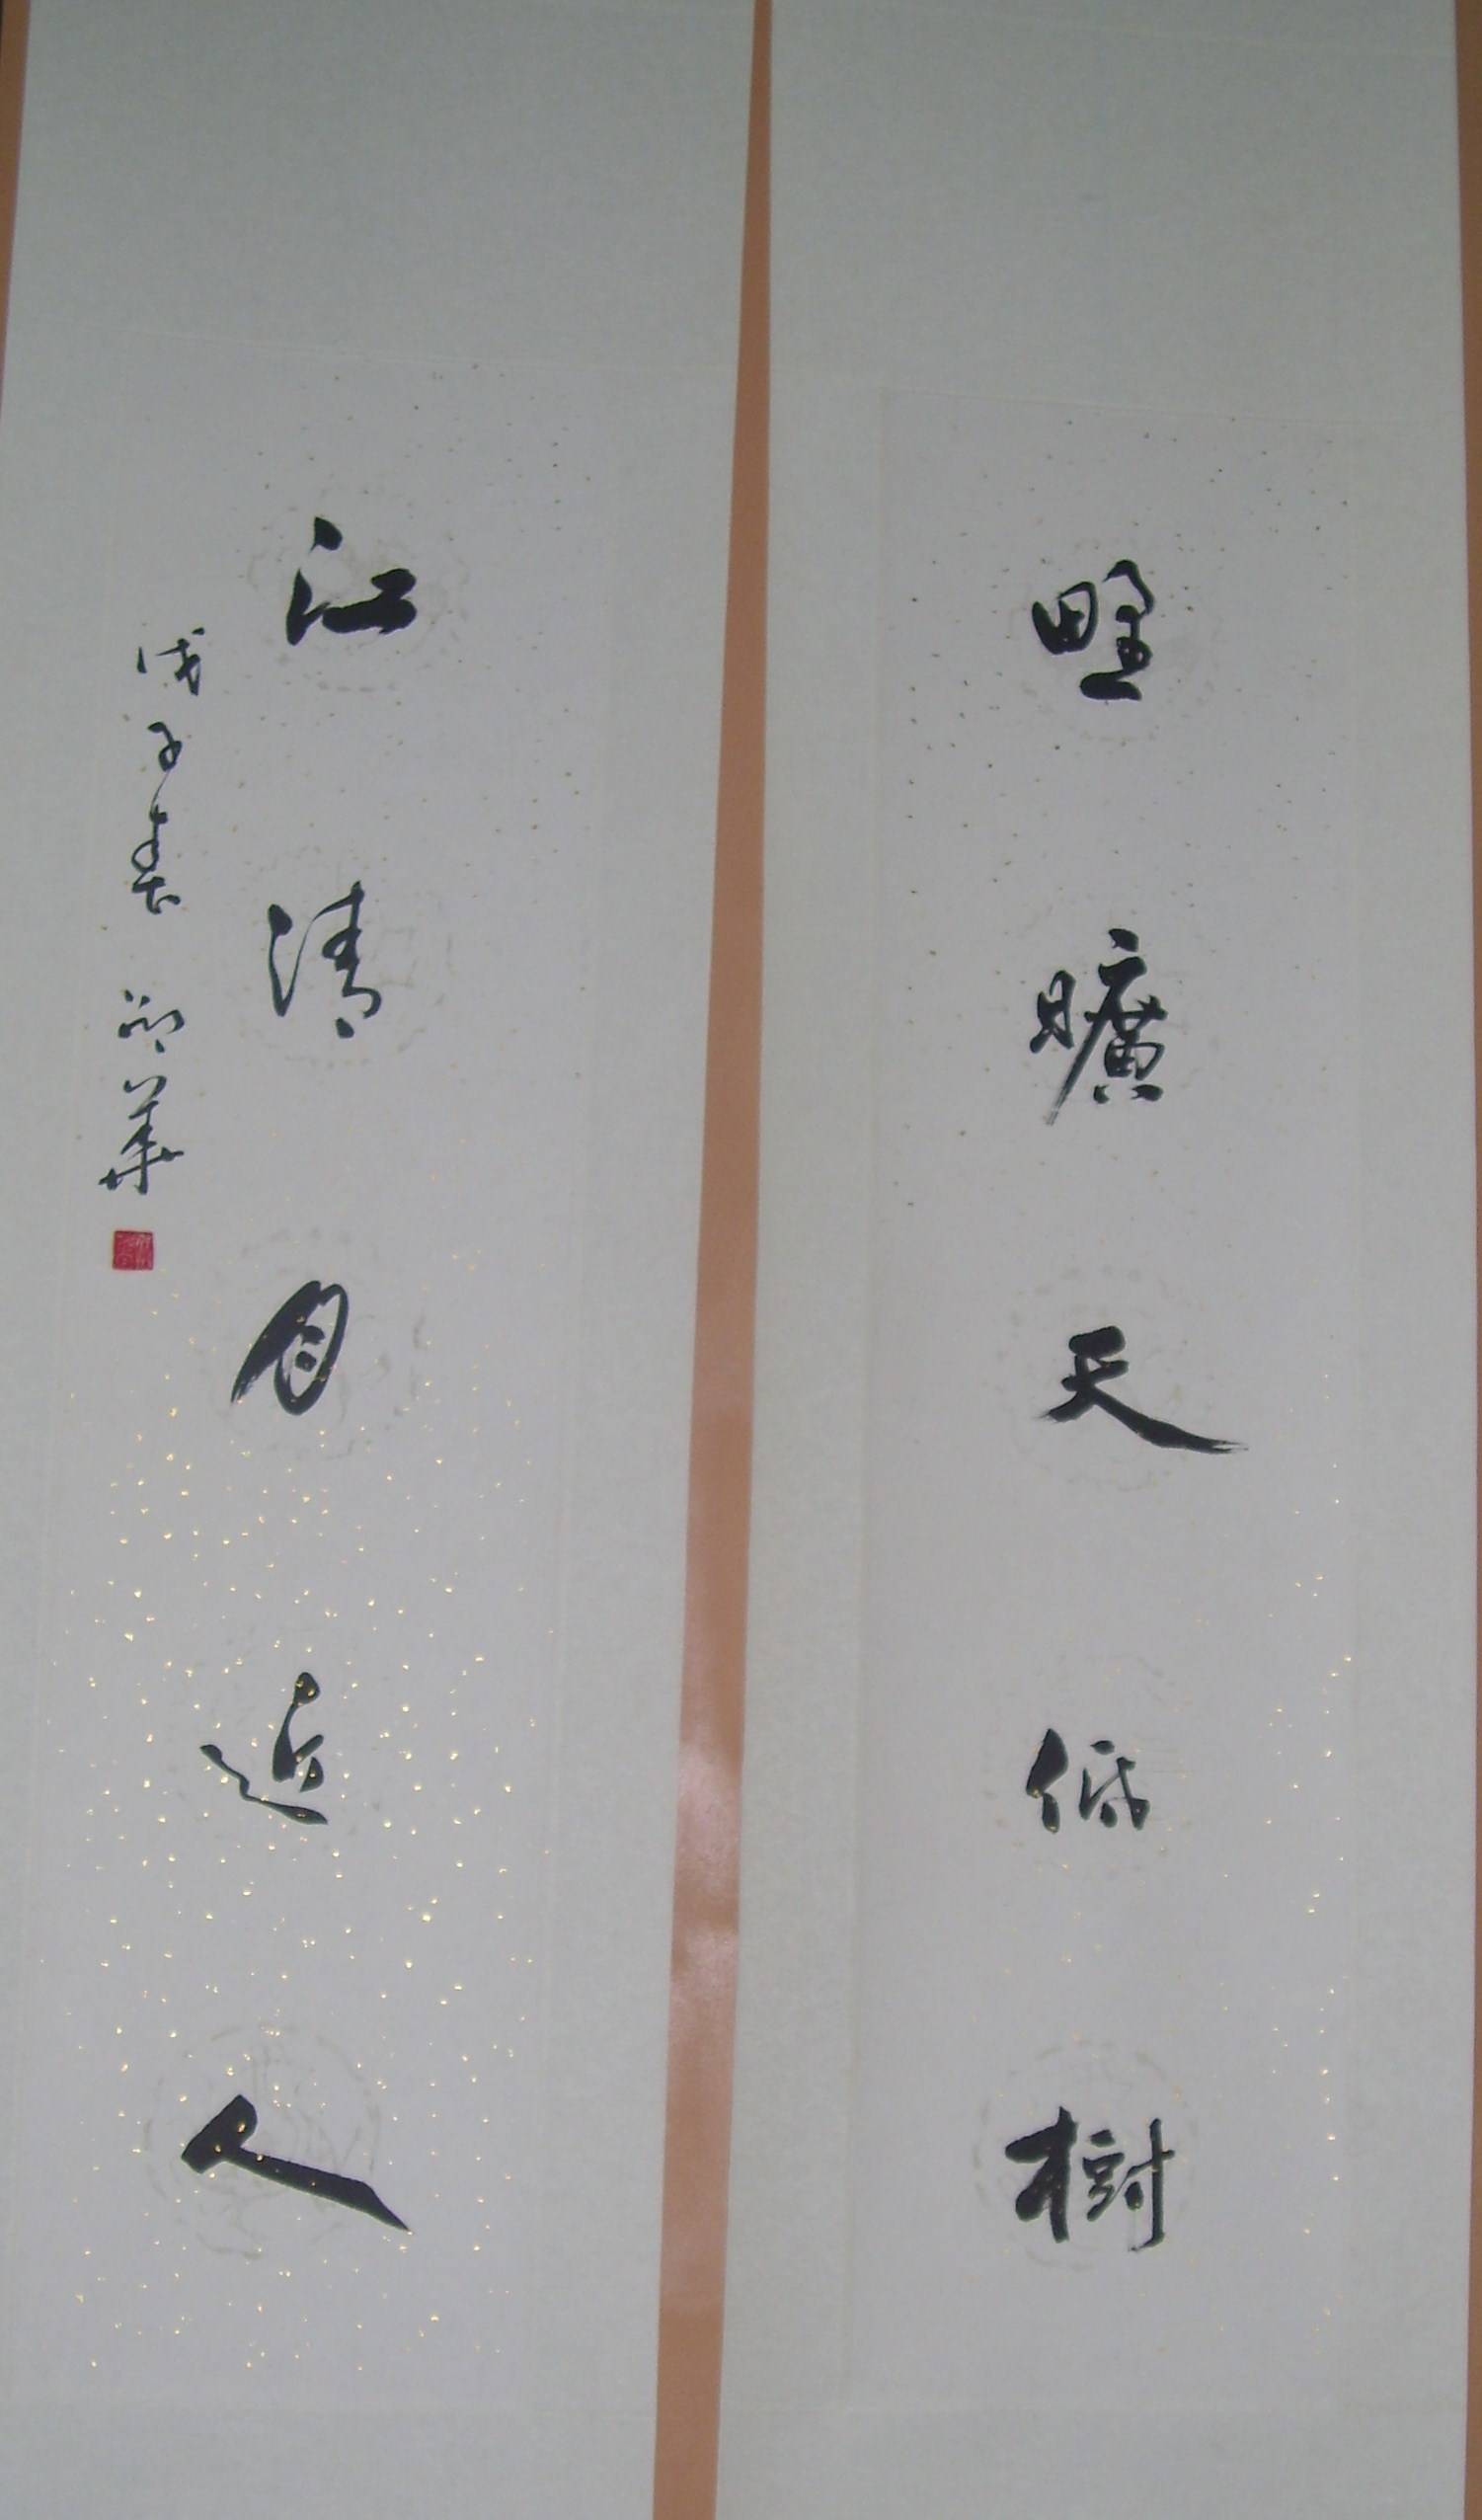 野曠天低樹
江清月近人
戊子春 邵華